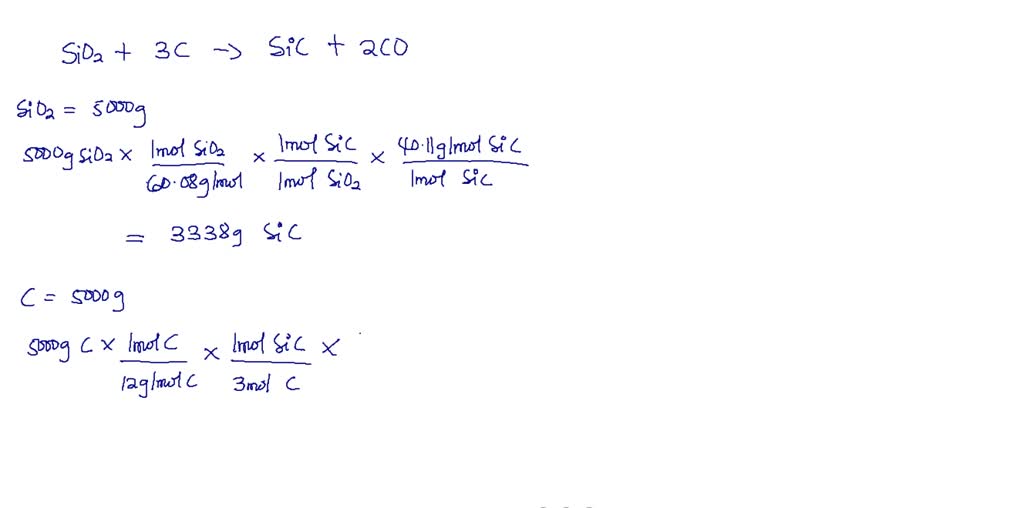 SiO₂ + 3C → SiC + 2CO
SiO₂ = 5000g
5000g SiO₂ × 1mol SiO₂ / 60.08g/mol × 1mol SiC / 1mol SiO₂ × 40.11g/mol SiC / 1mol SiC
= 3338g SiC
C = 5000g
5000g C × 1mol C / 12g/mol C × 1mol SiC / 3mol C ×